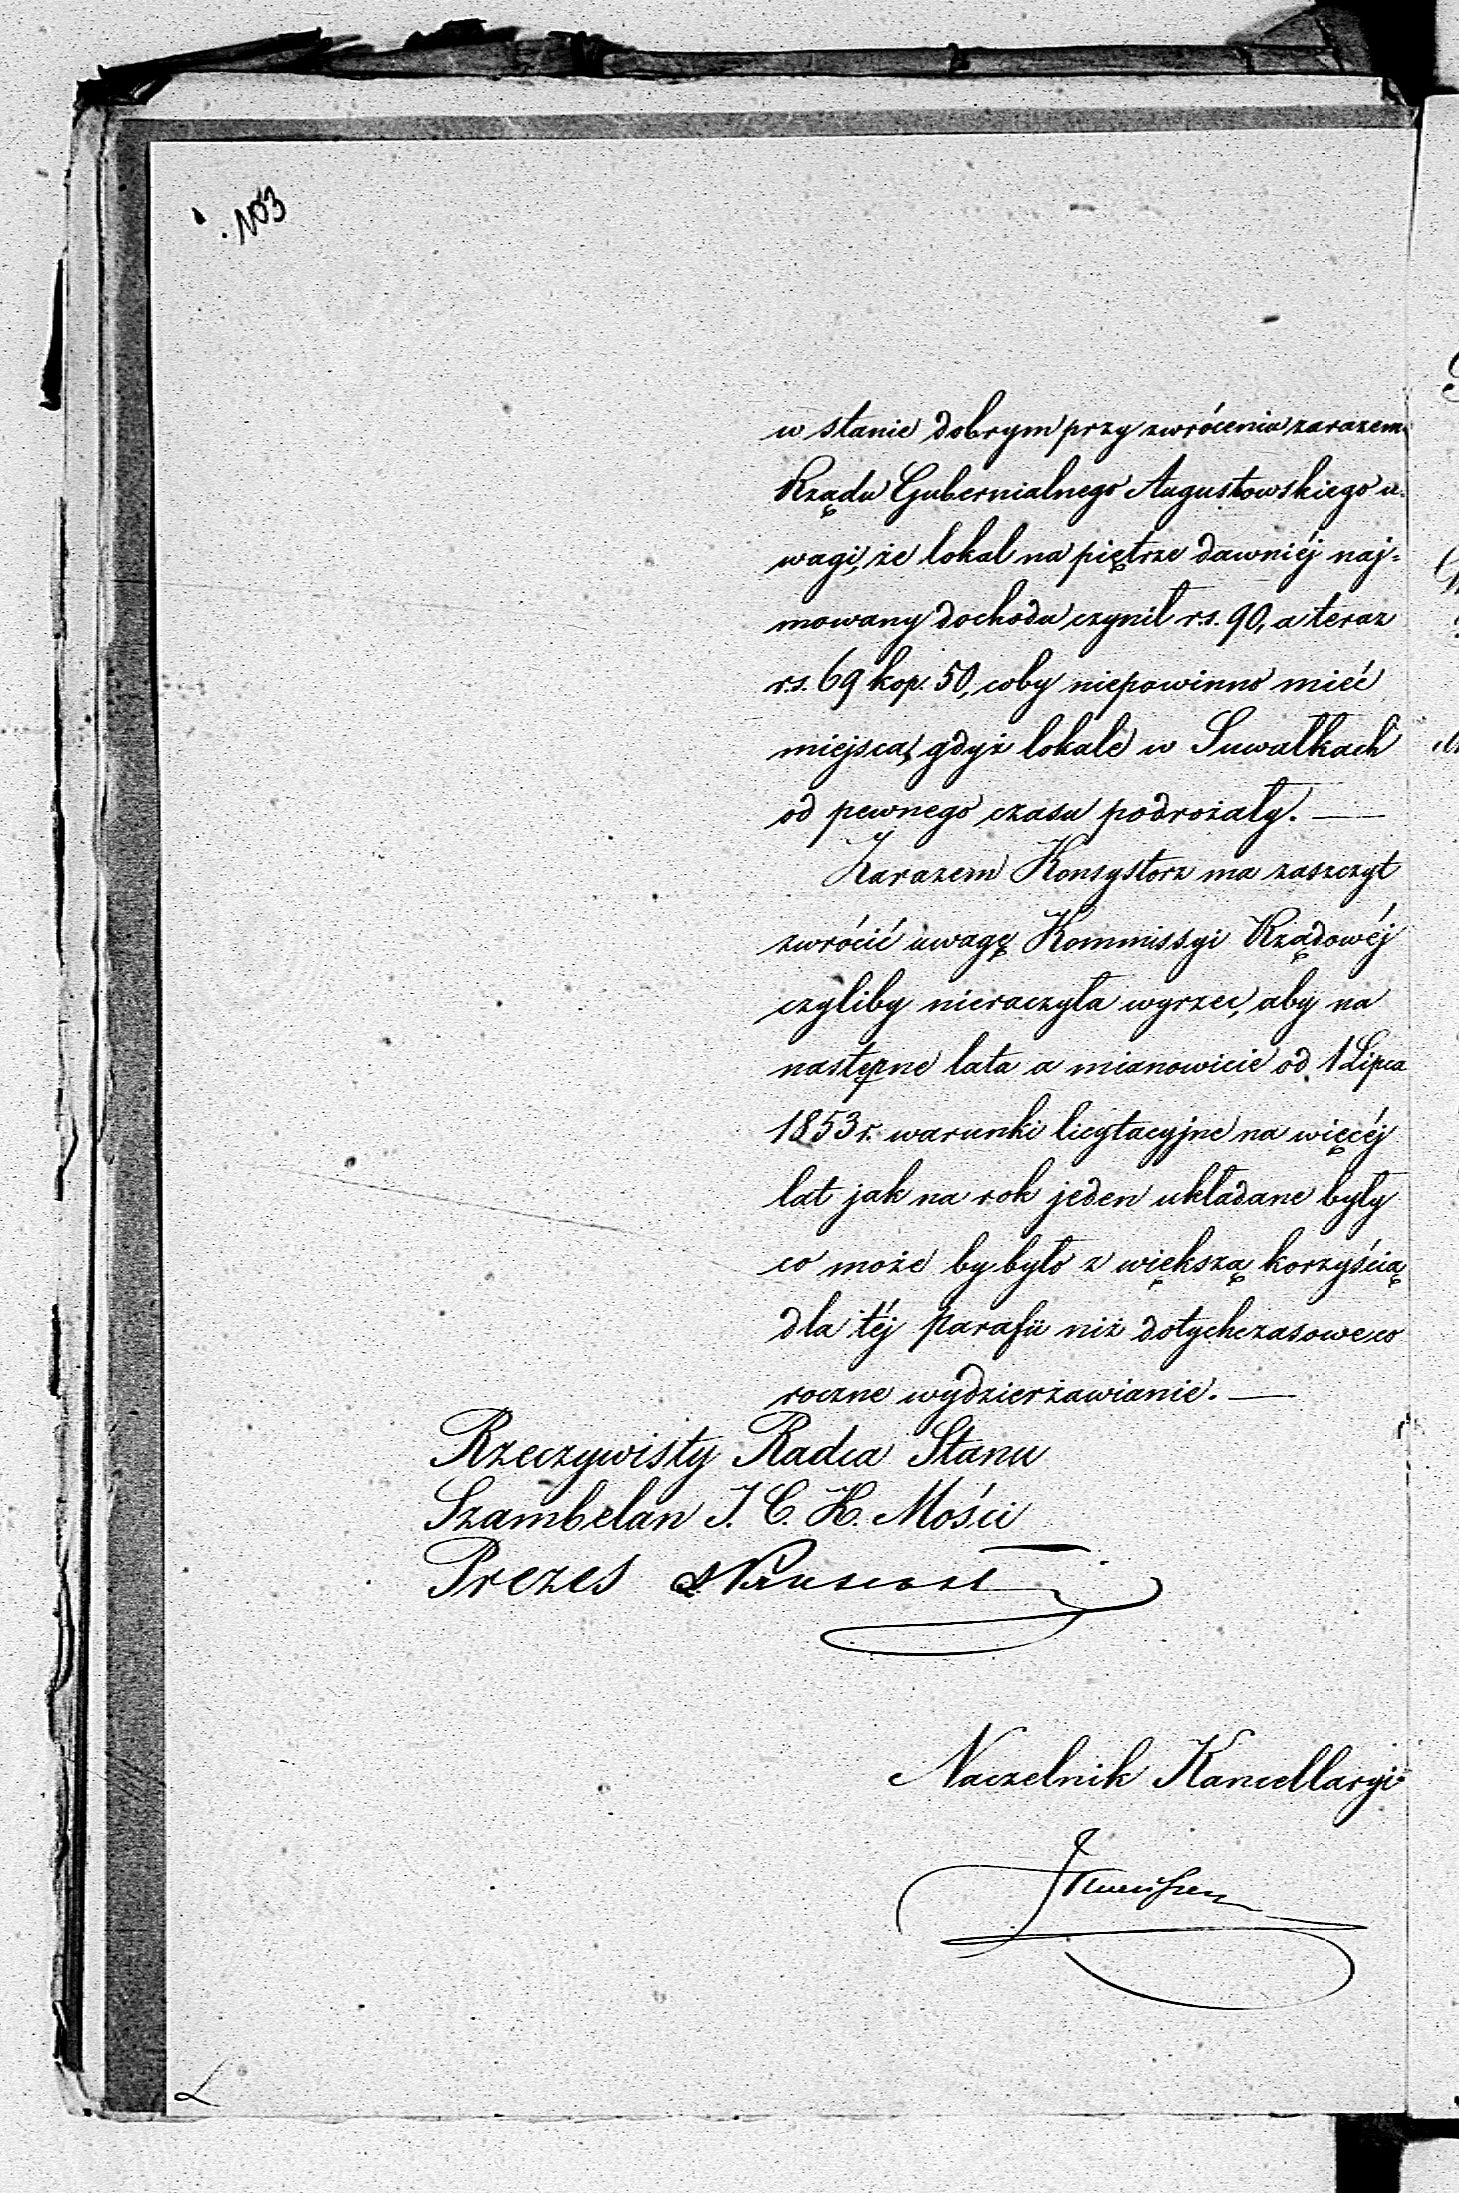 103
w stanie dobrym przy zwrócenia zarazem
Rządu Gubernialnego Augustowskiego u-
wagi, że lokal na piętrze dawniéj naj-
mowany dochodu czynił rs. 90, a teraz
rs. 69 kop. 50, coby niepowinno mieć
miejsca, gdyż lokale w Suwałkach
od pewnego czasu podrożały. —
Zarazem Konsystorz ma zaszczyt
zwrócić uwagę Kommissyi Rządowéj
czyliby nieraczyła wyrzec, aby na
następne lata a mianowicie od 1 Lipca
1853 r. warunki licytacyjne na więcéj
lat jak na rok jeden układane były
co może by było z większą korzyścią
dla téj Parafii niż dotychczasowe co
roczne wydzierżawianie. —
Rzeczywisty Radca Stanu
Szambelan J. C. K. Mości
Prezes
Naczelnik Kancellaryi